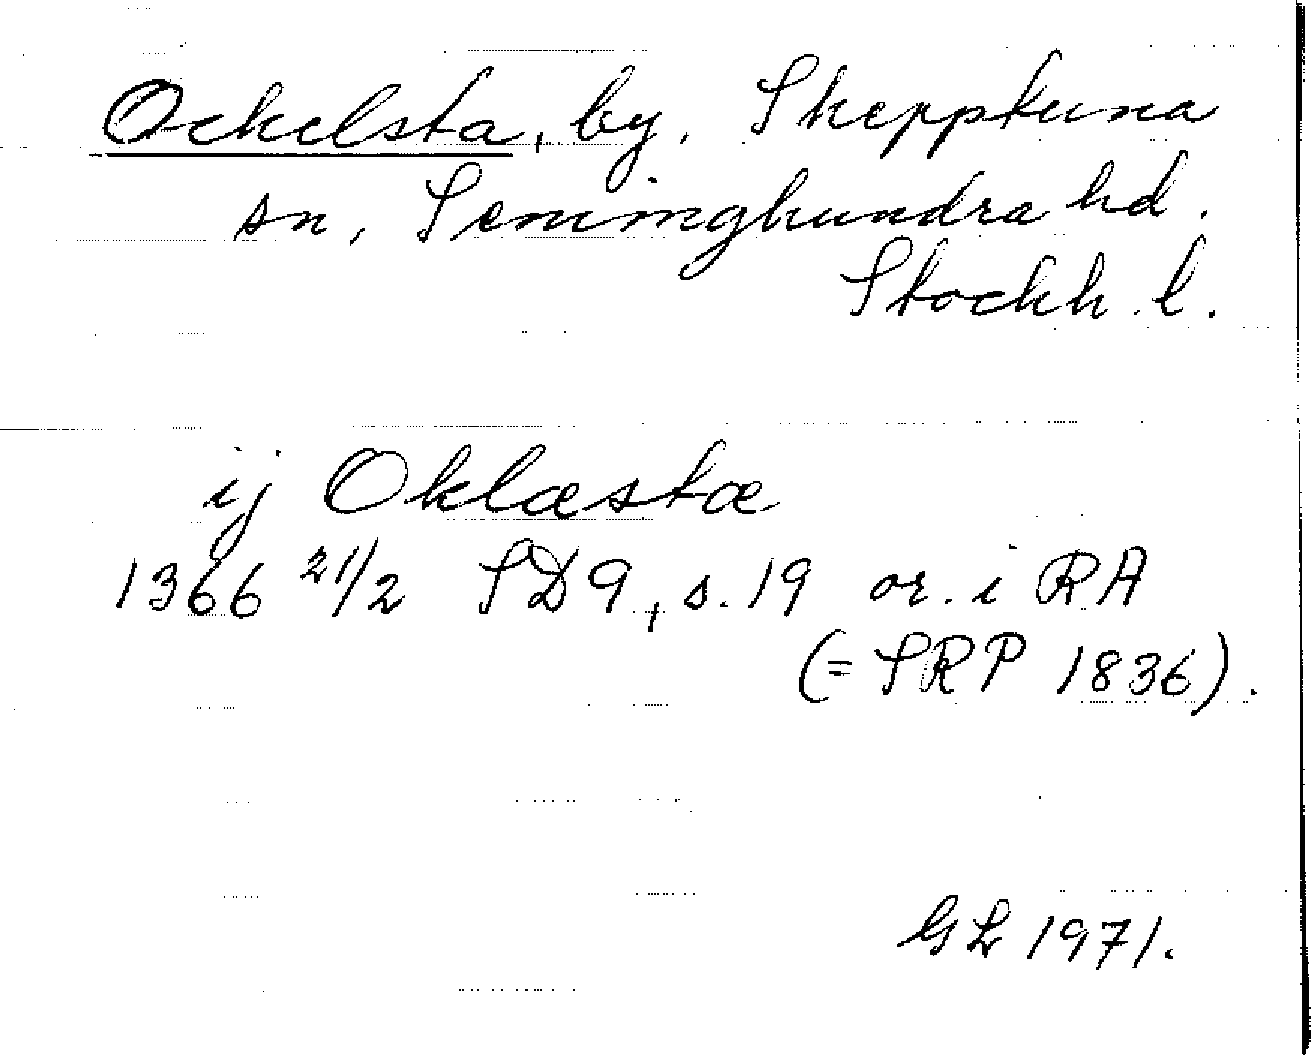 Ockelsta, by, Skepptuna
sn, Seminghundra hd.
Stockh. l.
ij Oklæstæ
1366 21/2 SD 9, s. 19 or. i RA
(= SRP 1836).
GL 1971.